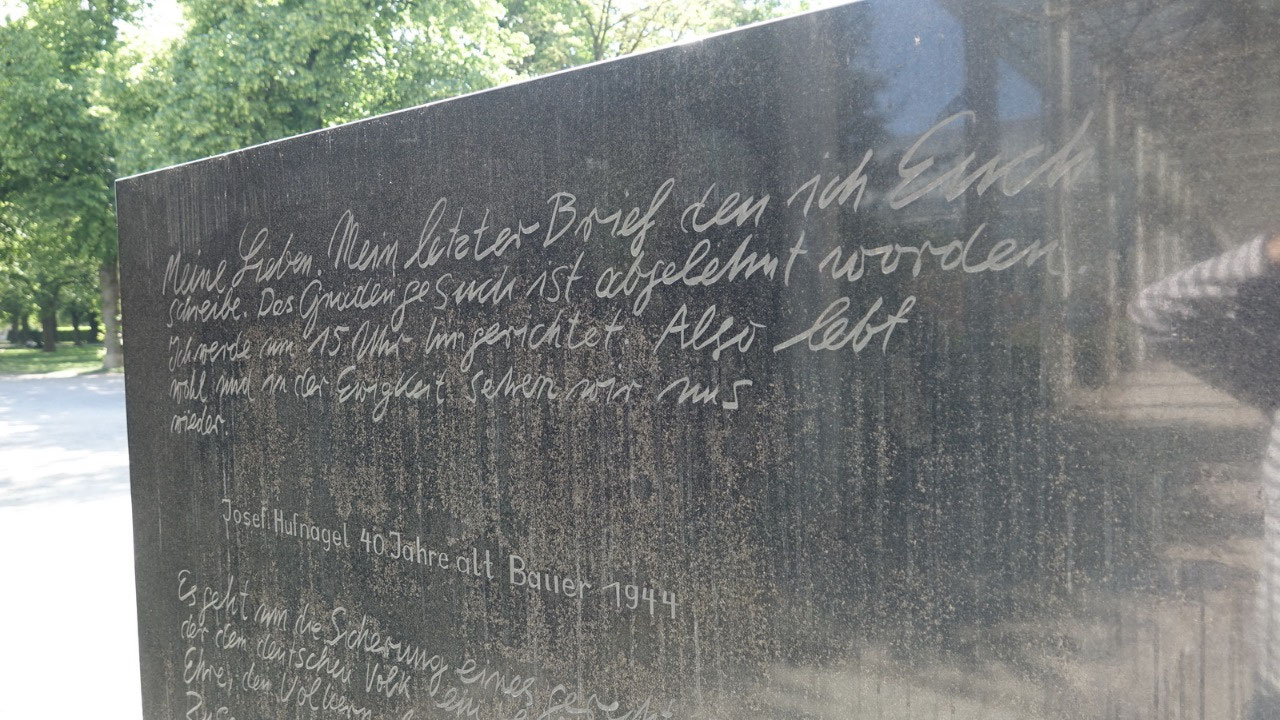 Meine Lieben. Mein letzter Brief den ich Euch
schreibe. Das Gnadengesuch ist abgelehnt worden.
Ich werde um 15 Uhr hingerichtet. Also lebt
wohl und in der Ewigkeit sehen wir uns
wieder.
Josef Hufnagel 40 Jahre alt Bauer 1944
Es geht um die Sicherung eines
der dem deutschen Volk
Ehre, den Völkern